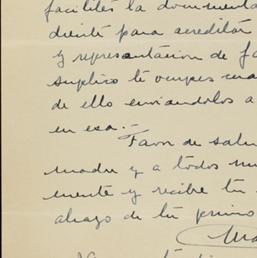 facilités la documenta
diente para acreditar
y representacion de fa
suplico te ocupes cua
de ello enviandolos a
en esa.-
Favor de salu
madre y a todos mi
mente y recibe tu
abrazo de tu primo